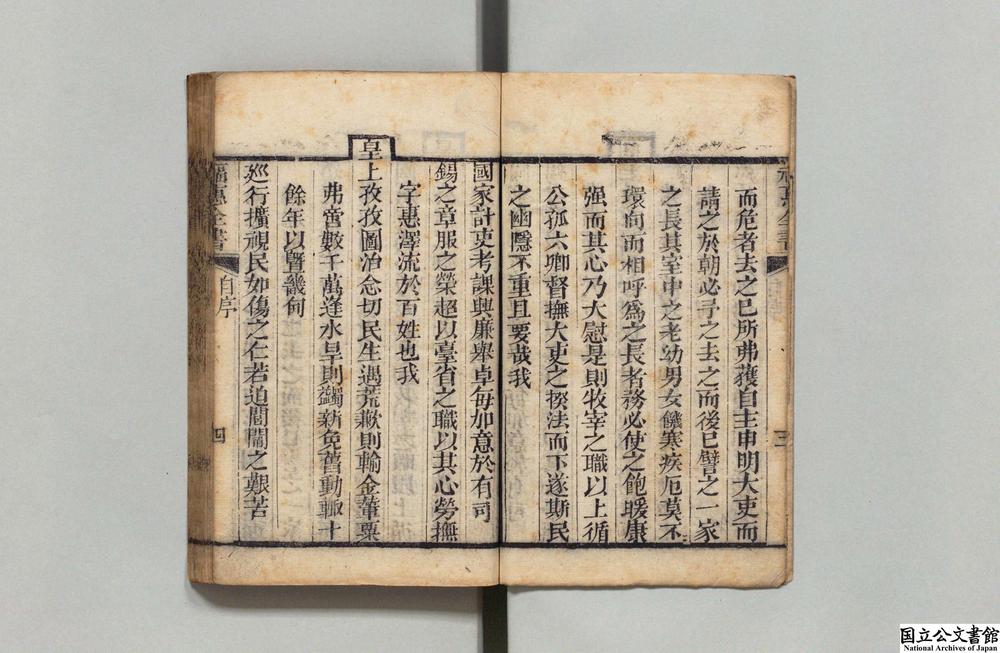 而危者去之已所弗獲自主申明大吏而
請之於朝必予之去之而後已譬之一家
之長其室中之老幼男女饑寒疾厄莫不
環向而相呼爲之長者務必使之飽暖康
强而其心乃大慰是則牧宰之職以上循
公孤六卿督撫大吏之揆法而下遂斯民
之幽隱不重且要哉我
國家計吏考課與廉舉卓每加意於有司
錫之章服之榮超以臺省之職以其心勞撫
字惠澤流於百姓也我
皇上孜孜圖治念切民生遇荒歉則輸金輦粟
弗啻數千萬逢水旱則蠲新免舊動輒十
餘年以暨畿甸
廵行擴視民如傷之仁若迫閭閻之艱苦
福惠全書
自序
三
四
国立公文書館
National Archives of Japan